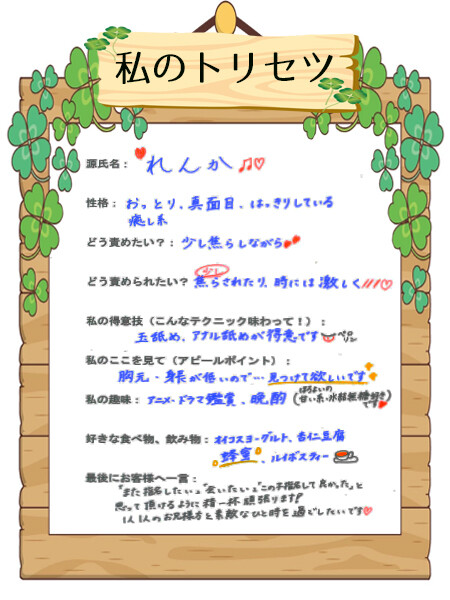 私のトリセツ
源氏名： れんか♫♡
性格： おっとり、真面目、はっきりしている
癒し系
どう責めたい？： 少し焦らしながら
どう責められたい？ 少し焦らされたり、時には激しく///♡
私の得意技（こんなテクニック味わって！）：
玉舐め、アナル舐めが得意です ペロリン
私のここを見て（アピールポイント）：
胸元・身長が低いので…見つけて欲しいです
私の趣味： アニメ・ドラマ鑑賞、晩酌（ほろよいの甘い系・水 糖好きです
好きな食べ物、飲み物： オイコスヨーグルト、杏仁豆腐
蜂蜜、ルイボスティー
最後にお客様へ一言：
「また指名したい」「会いたい」「この子指名して良かった」と
思って頂けるように精一杯頑張ります!
1人1人のお兄様方と素敵なひと時を過ごしたいです♡